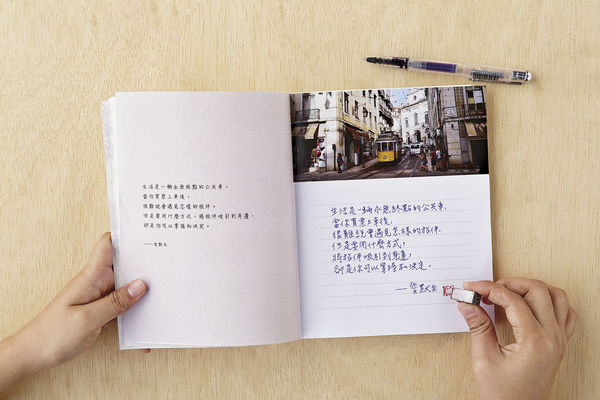 生活是一輛永無終點的公共車，
當你買票上車後，
很難說會遇見怎樣的旅伴。
但是要用什麼方式，將旅伴吸引到身邊，
卻是你可以掌握和決定。
生活是一輛永無終點的公共車，
當你買票上車後，
很難說會遇見怎樣的旅伴，
但是要用什麼方式，
將旅伴吸引到身邊，
卻是你可以掌握和決定。